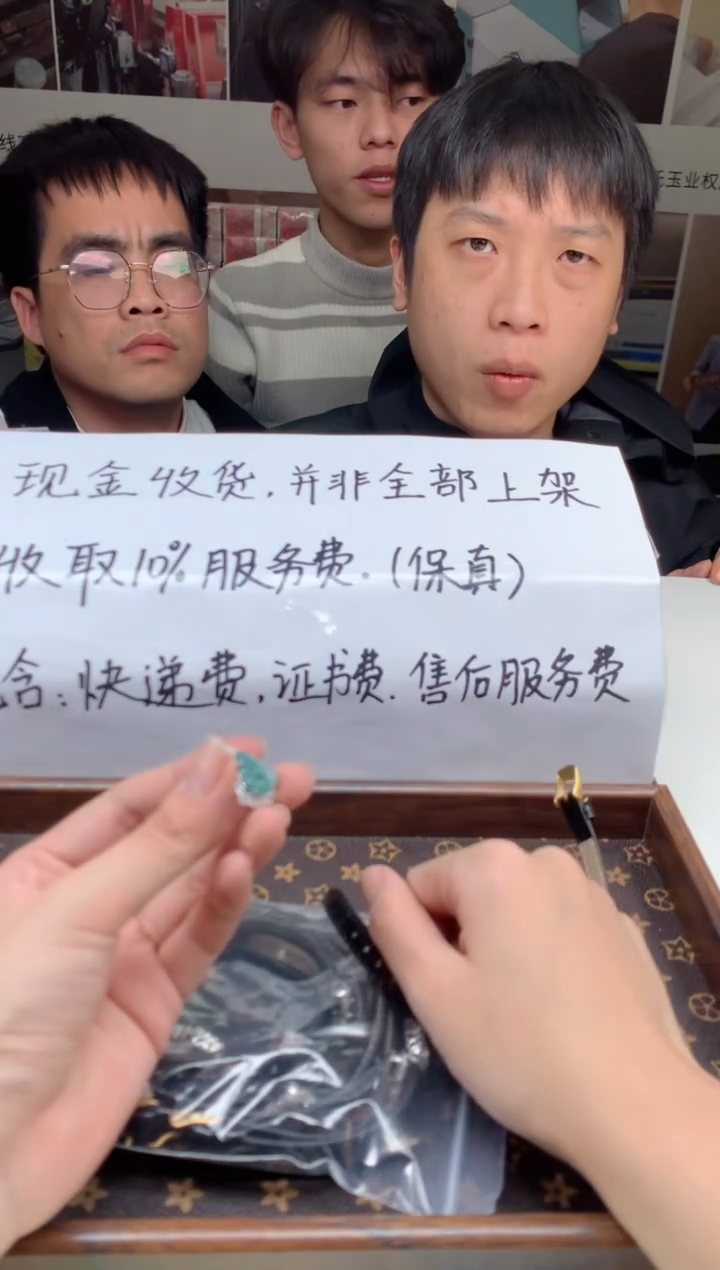 线
玉业权
现金收货.并非全部上架
收取10%服务费.(保真)
含:快递费.证书费.售后服务费